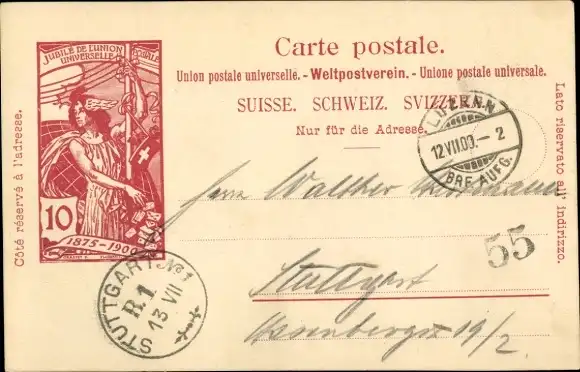 JUBILÉ DE L'UNION
POSTALE
UNIVERSELLE
10
1875-1900
Côté réservé à l'adresse.
Carte postale.
Union postale universelle. - Weltpostverein. - Unione postale universale.
SUISSE. SCHWEIZ. SVIZZERA.
Nur für die Adresse.
Lato riservato all' indirizzo.
LUZERN
12.VII.00.-2
BRF. AUFG.
Herrn Walther
55
Stuttgart
19/2.
STUTTGART No 1
R.1
13 VII